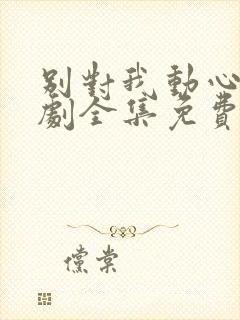 別對我動心
劇全集免費
儻棠